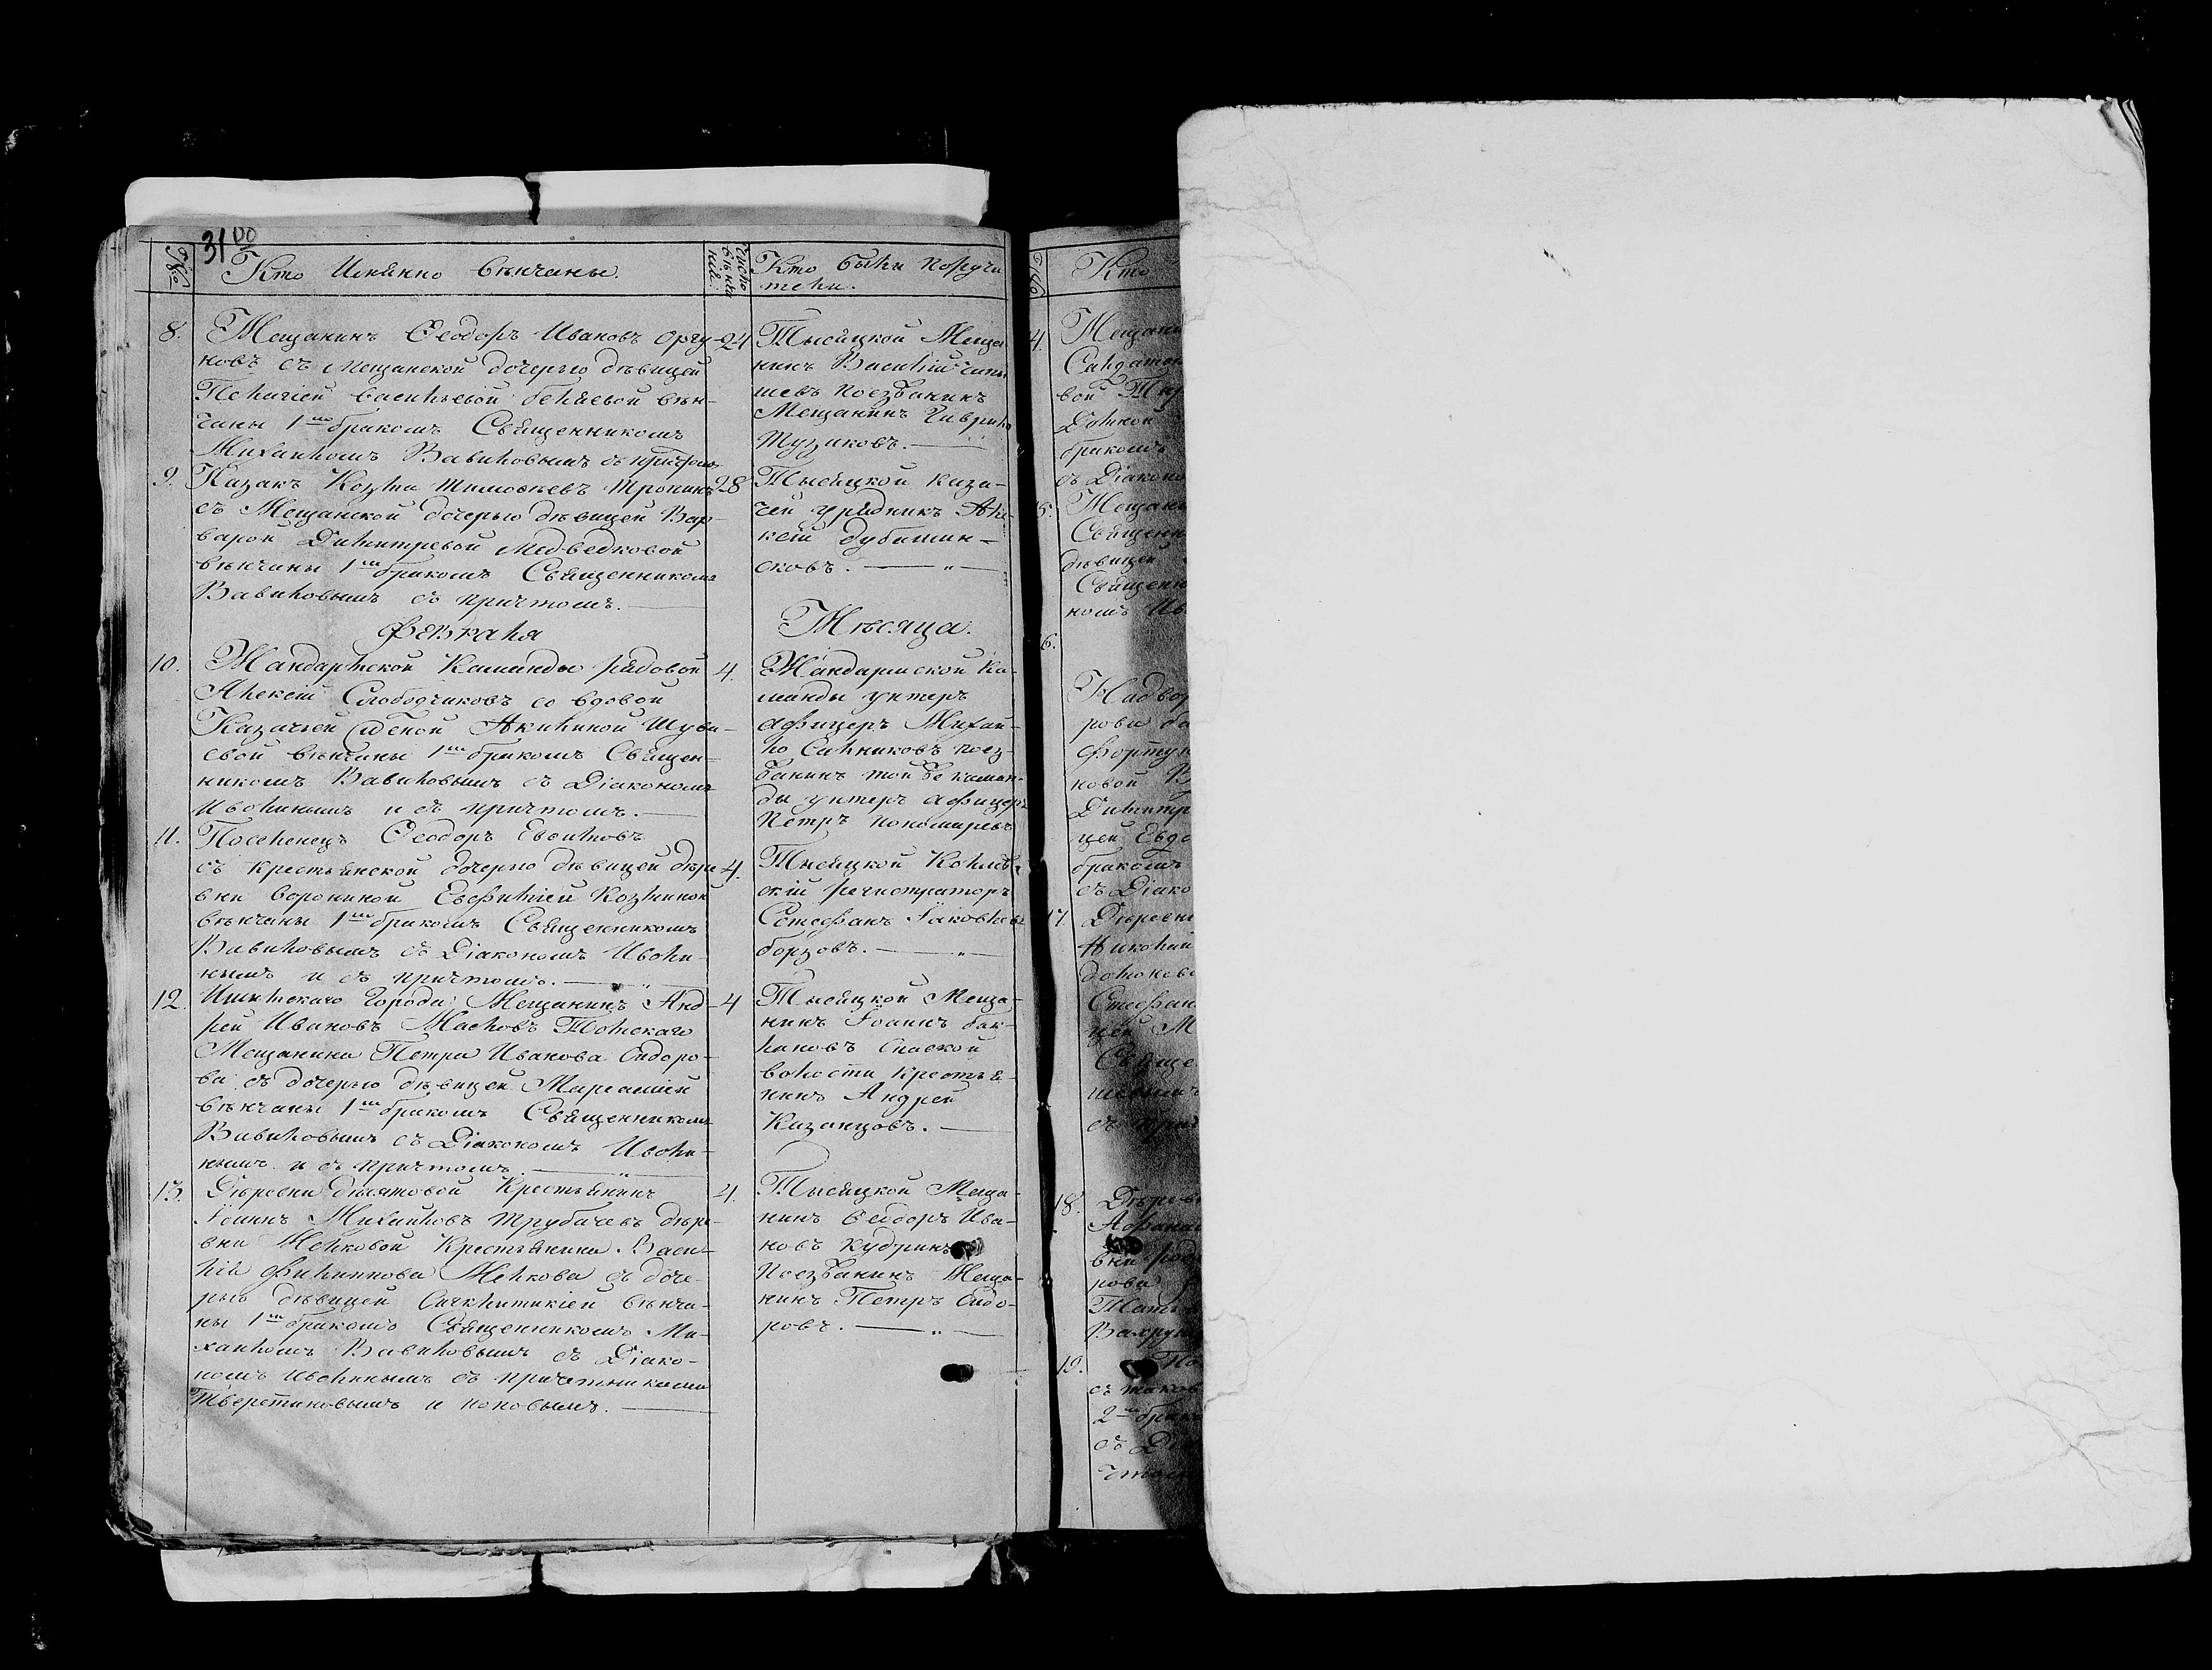 3100
№ Кто Именно венчаны.
Число венчанiй.
Кто были поручи
тели.
8. Мещанинъ Ѳеодоръ Ивановъ Оргу-
новъ съ мещанской дочерью дѣвицей
Пелагiей Васильевой Беляевой вѣн-
чаны 1мъ бракомъ Священникомъ
Михаиломъ Вавиловымъ съ причтомъ
24 Тысяцкой Меща
нинъ Василiй
шевъ поезжанинъ
Мещанинъ Гаврило
Тузиковъ.
9. Казакъ Козма Тимоѳеевъ Тропинъ
съ Мещанской дочерью дѣвицей Вар-
варой Димитревой Медведковой
вѣнчаны 1мъ бракомъ Священникомъ
Вавиловымъ съ причтомъ.
28 Тысяцкой каза-
чей урядникъ Але-
ксей Дубатин-
сковъ.
Февраля
Мѣсяца.
10. Жандармской Каманды рядовой
Алексiй Слободчиковъ со вдовой
Казачьей женой Акилиной Шува-
евой вѣнчаны 1мъ бракомъ Священ-
никомъ Вавиловымъ съ Дiакономъ
Иволинымъ и съ причтомъ.
4. Жандармской Ка-
манды унтеръ
афицеръ Михай-
ло Ситниковъ поез-
жанинъ той же каман-
ды унтеръ афицеръ
Петръ Пономаревъ
11. Поселенецъ Ѳеодоръ Евоимовъ
съ крестьянской дочерью дѣвицей дѣре
вни Ворониной Евфимiей Козминой
вѣнчаны 1мъ бракомъ Священникомъ
Вавиловымъ съ Дiакономъ Иволи-
нымъ и съ причтомъ.
4. Тысяцкой Колле
скiй регистраторъ
Стефанъ Iаковлевъ
Борзовъ.
12. Ишимскаго Города Мещанинъ Анд-
рей Ивановъ Масловъ Томскаго
Мещанина Петра Иванова Сидоро-
ва съ дочерью дѣвицей Мареамiей
вѣнчаны 1мъ бракомъ Священникомъ
Вавиловымъ съ Дiакономъ Иволи-
нымъ и съ причтомъ.
4 Тысяцкой Меща-
нинъ Iоаннъ Бак-
лановъ Спаской
волости Крестья-
нинъ Андрей
Казанцовъ.
13. Дѣревни Десятовой Крестьянинъ
Iоаннъ Михайловъ Трубачевъ дѣре-
вни Мелковой Крестьянина Васи-
лiя Филиппова Мелкова съ доче-
рью дѣвицей Сигклитикiей вѣнча-
ны 1мъ бракомъ Священникомъ Ми-
хаиломъ Вавиловымъ съ Дiако-
номъ Иволинымъ съ причетниками
Тверетиновымъ и Поповымъ.
4. Тысяцкой Меща-
нинъ Ѳеодоръ Ива-
новъ Кудринъ
Поезжанинъ Меща-
нинъ Петръ Сидо-
ровъ.
Кто
4. Мещани
вой
бракомъ
съ Дiакон
5. Мещани
Священн
дѣвицей
Священн
6.
Надвор
рова
новой
Димитр
цей Евдо
бракомъ
съ Дiако
17. Дѣревни
Николай
Стефан
цей М
Священ
18. Дѣревн
Афанас
вни
рова
19.
съ
2мъ брак
съ Дi